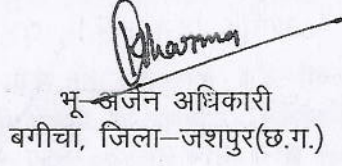 Dharma
भू-अर्जन अधिकारी
बगीचा, जिला-जशपुर(छ.ग.)